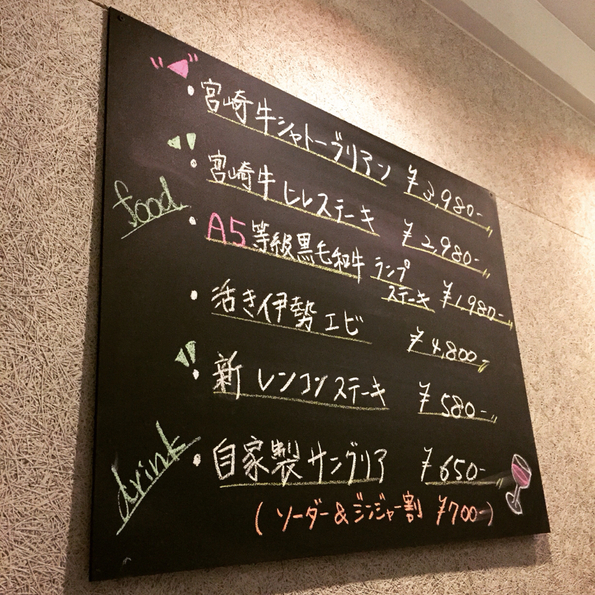 ・宮崎牛シャトーブリアン ¥3,980-
・宮崎牛ヒレステーキ ¥2,980-
food
・A5等級黒毛和牛 ランプ
ステーキ ¥1,980-
・活き伊勢エビ ¥4,800-
・新レンコンステーキ ¥580-
drink
・自家製サングリア ¥650-
(ソーダー&ジンジャー割 ¥700-)